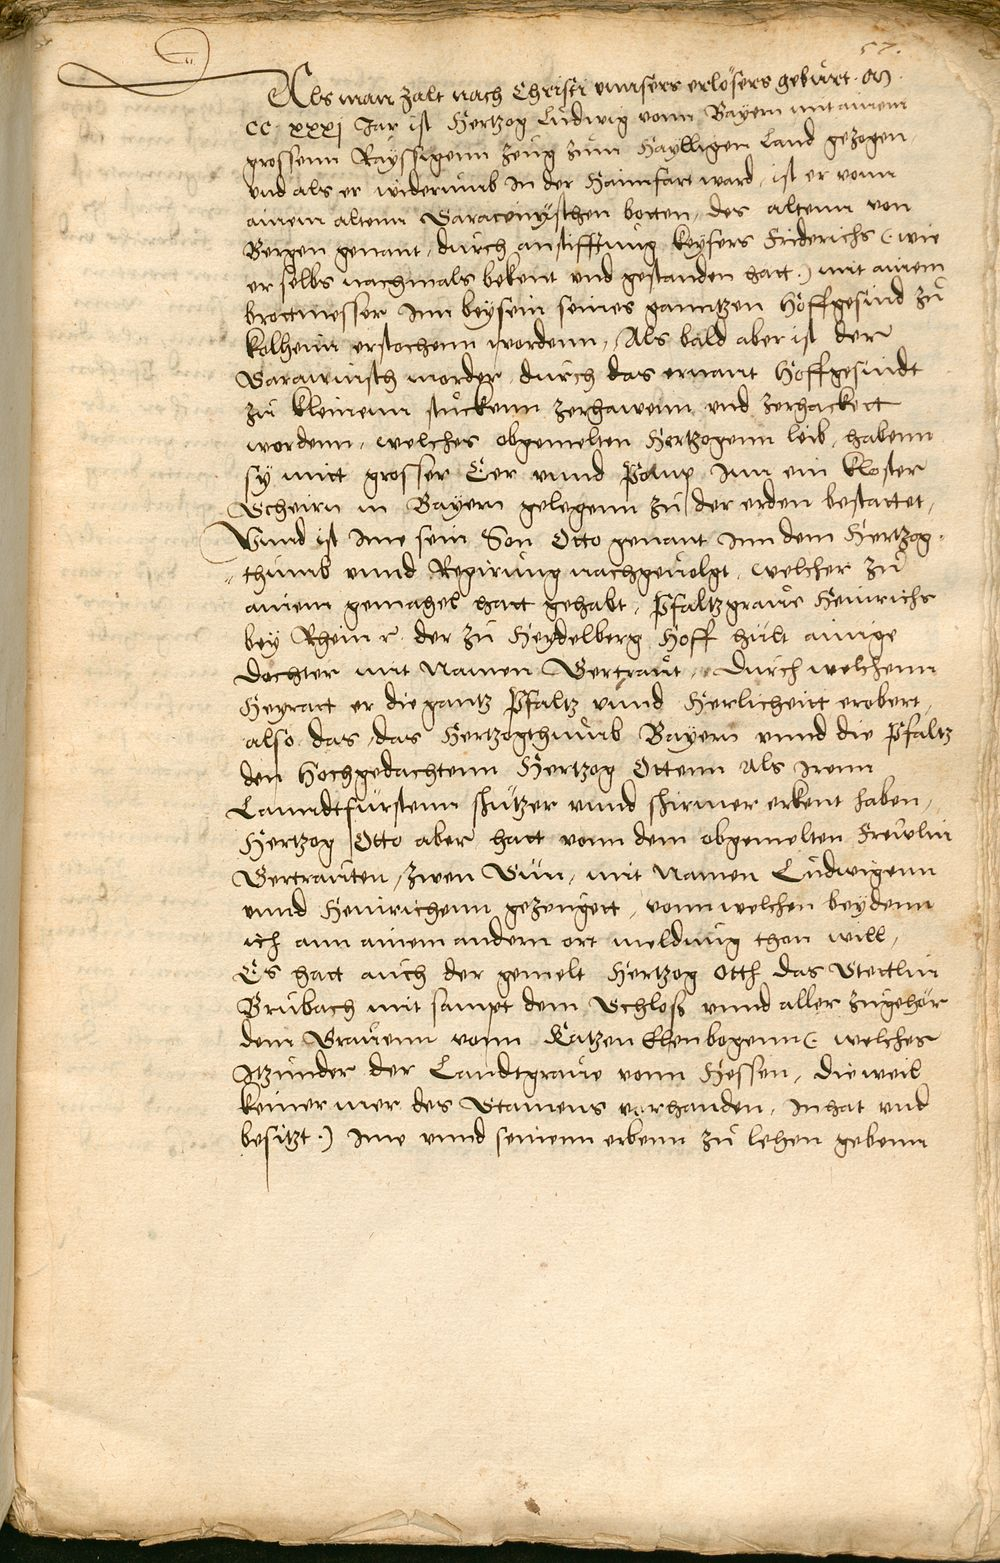 57.
Als man zalt nach Christi unnsers erlösers geburt. M
CC xxxj Jar ist Hertzog Ludwig vonn Bayern mit ainem
grossenn Rayssigenn zeug zum Haylligen Land gezogen,
vnd als er widerumb in der Haimfart ward, ist er vonn
ainem altenn Saracenischen botten, des altenn von
Bergen genant, durch anstifftung keysers Friderichs (: wie
er selbs nachmals bekent vnd gestanden hatt.) mit ainem
brottmesser Inn beysein seines ganntzen Hoffgesind zu
kelheim erstochenn wordenn, Als bald aber ist der
Saracenisch morder, durch das ernant Hoffgesindt
zu kleinenn stuckenn zerhawenn vnd zerhackett
wordenn, welches obgemelten Hertzogenn leib, habenn
sy mitt grosser Eer vnnd Pomp Inn ein kloster
Scheirn in Bayern gelegenn zu der erden bestattet,
Vnnd ist Ime sein Son Otto genant Inn dem Hertzog-
thumb vnnd Regirung nachgeuolgt, welcher zu
ainem gemahel hatt gehabt, Pfaltzgraue Heinrichs
bey Rhein r. der zu Heydelberg Hoff hült ainige
dochter mit Namen Gertraut, Durch welchenn
Heyratt er die gantz Pfaltz vnnd Herlicheitt erobert,
also das, das Hertzogthumb Bayern vnnd die Pfaltz
den Hochgedachtenn Hertzog Ottenn als Irenn
Lanndtfürstenn schützer vnnd schirmer erkent haben,
Hertzog Otto aber hatt vonn dem obgemelten Frewlin
Gertrauten, zwen Sün, mit Namen Ludwigenn
vnnd Heinrichenn gezeugett, vonn welchen beydenn
ich ann ainem andern ort meldung thon will,
Es hatt auch der gemelt Hertzog Otth das Stettlin
Brubach mit sampt dem Schloß vnnd aller zugehör
dem Grauenn vonn Katzen Elenbogenn (: welches
Itzunder der Landtgraue vonn Hessen, die weil
keiner mer des Stamens vorhanden, Inhat vnd
besitzt.) Ime vnnd seinenn erbenn zu lehen gebenn